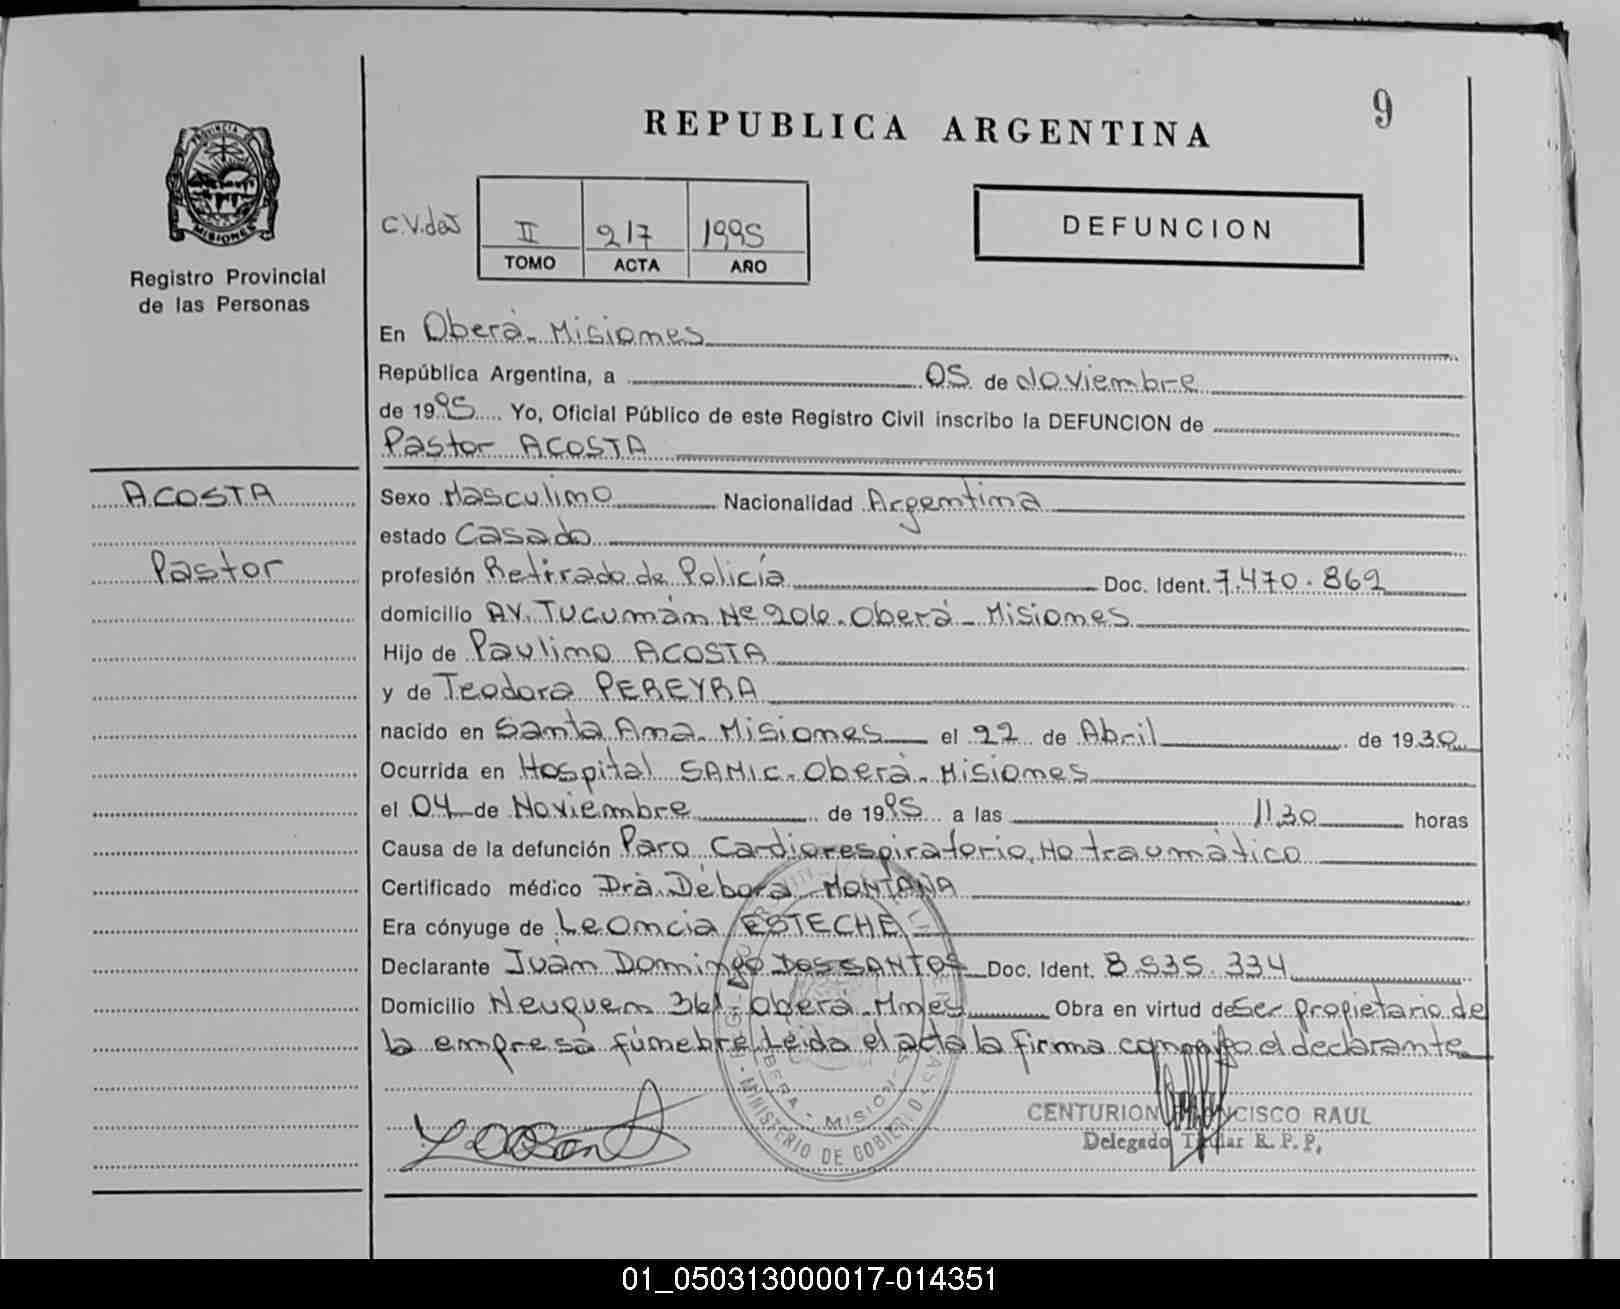 9
REPUBLICA ARGENTINA
PROVINCIA DE
MISIONES
Registro Provincial
de las Personas
C.V.das
II 217 1995
TOMO ACTA AÑO
DEFUNCION
En Oberá - Misiones
República Argentina, a 05 de Noviembre
de 1995 Yo, Oficial Público de este Registro Civil inscribo la DEFUNCION de
Pastor ACOSTA
ACOSTA
Pastor
Sexo Masculino Nacionalidad Argentina
estado Casado
profesión Retirado de Policía Doc. Ident. 7.470.869
domicilio AV. Tucumán Nº 206 - Oberá - Misiones
Hijo de Paulino ACOSTA
y de Teodora PEREYRA
nacido en Santa Ana - Misiones el 22 de Abril de 1930
Ocurrida en Hospital SAMIC - Oberá - Misiones
el 04 de Noviembre de 1995 a las 11,30 horas
Causa de la defunción Paro Cardiorespiratorio, No traumático
Certificado médico Dra. Débora MONTAÑA
Era cónyuge de Leoncia ESTECHE
Declarante Juan Domingo DOS SANTOS Doc. Ident. 8.535.334
Domicilio Neuquen 361 Oberá - Mnes Obra en virtud de Ser propietario de
la empresa fúnebre. Leida el acta la firma conmigo el declarante
OBERA - MISIONES
MINISTERIO DE GOBIERNO
CENTURION FRANCISCO RAUL
Delegado Titular R. P. P.
01_050313000017-014351